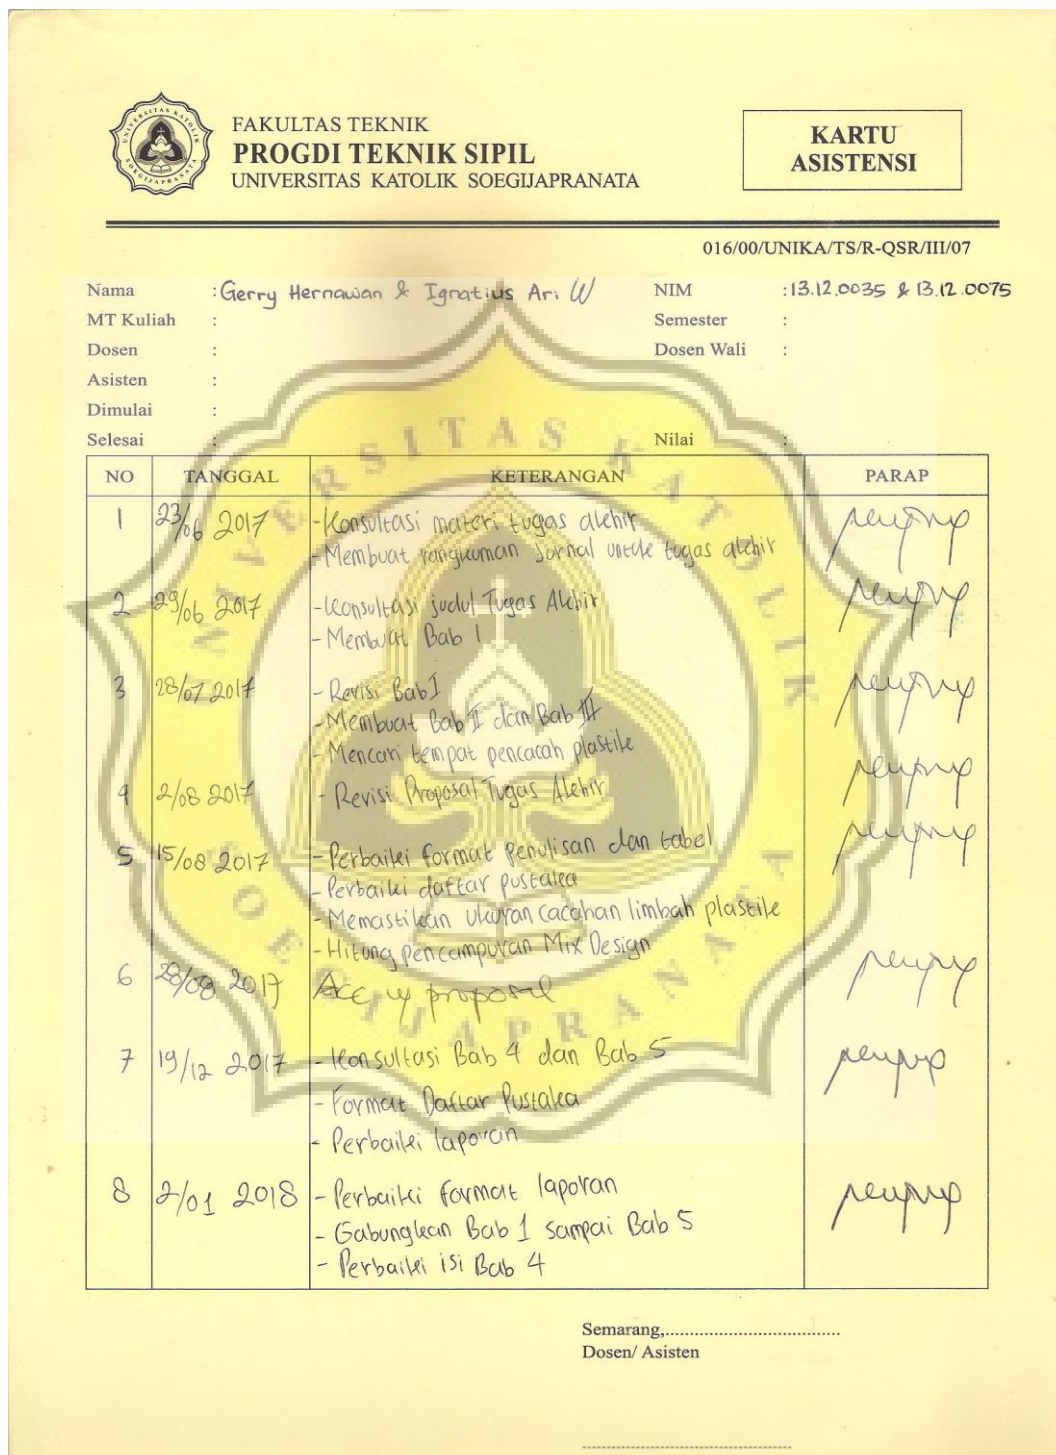 UNIVERSITAS KATOLIK
SOEGIJAPRANATA
FAKULTAS TEKNIK
PROGDI TEKNIK SIPIL
UNIVERSITAS KATOLIK SOEGIJAPRANATA
KARTU
ASISTENSI
016/00/UNIKA/TS/R-QSR/III/07
Nama : Gerry Hernawan & Ignatius Ari W NIM : 13.12.0035 & 13.12.0075
MT Kuliah : Semester :
Dosen : Dosen Wali :
Asisten :
Dimulai :
Selesai : Nilai :
UNIVERSITAS KATOLIK
SOEGIJAPRANATA
NO TANGGAL KETERANGAN PARAP
1 23/06 2017 - Konsultasi materi tugas akhir
- Membuat rangkuman Jurnal untuk tugas akhir
2 29/06 2017 - Konsultasi judul Tugas Akhir
- Membuat Bab 1
3 28/07 2017 - Revisi Bab I
- Membuat Bab II dan Bab III
- Mencari tempat pencacah plastik
4 2/08 2017 - Revisi Proposal Tugas Akhir
5 15/08 2017 - Perbaiki format penulisan dan tabel
- Perbaiki daftar pustaka
- Memastikan ukuran cacahan limbah plastik
- Hitung pencampuran Mix Design
6 28/08 2017 Acc proposal
7 19/12 2017 - Konsultasi Bab 4 dan Bab 5
- Format Daftar Pustaka
- Perbaiki laporan
8 2/01 2018 - Perbaiki format laporan
- Gabungkan Bab 1 sampai Bab 5
- Perbaiki isi Bab 4
Semarang,....................................
Dosen/ Asisten